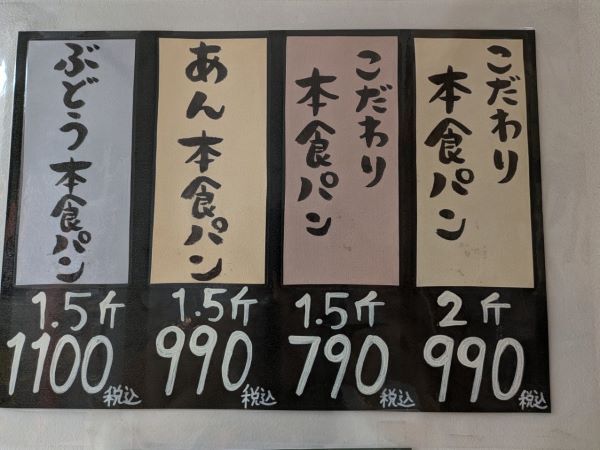 こだわり
本食パン
2斤
990
税込
こだわり
本食パン
1.5斤
790
税込
あん本食パン
1.5斤
990
税込
ぶどう本食パン
1.5斤
1100
税込